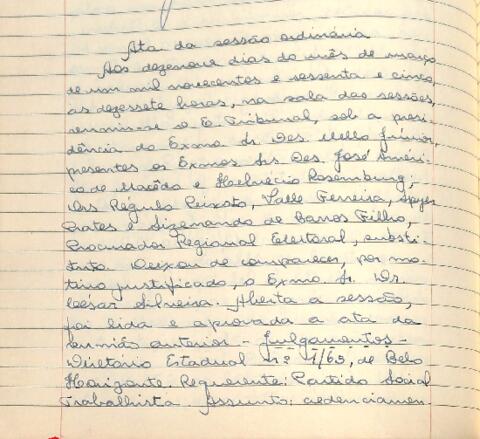 Ata da sessão ordinária
Aos dezenove dias do mês de março
de um mil novecentos e sessenta e cinco,
às dezessete horas, na sala das sessões,
reuniu-se o E. Tribunal, sob a presi-
dência do Exmo Sr. Des. Mello Júnior,
presentes os Exmos Srs Des. José Améri-
co de Macêdo e Helvécio Rosemburg;
Drs Régulo Peixoto, Valle Ferreira, Spyer
Prates e Sizenando de Barros Filho,
Procurador Regional Eleitoral, substi-
tuto. Deixou de comparecer, por mo-
tivo justificado, o Exmo. Sr. Dr.
César Silveira. Aberta a sessão,
foi lida e aprovada a ata da
reunião anterior - Julgamentos -
Diretório Estadual nº 1/65, de Belo
Horizonte. Requerente: Partido Social
Trabalhista. Assunto: credenciamen-